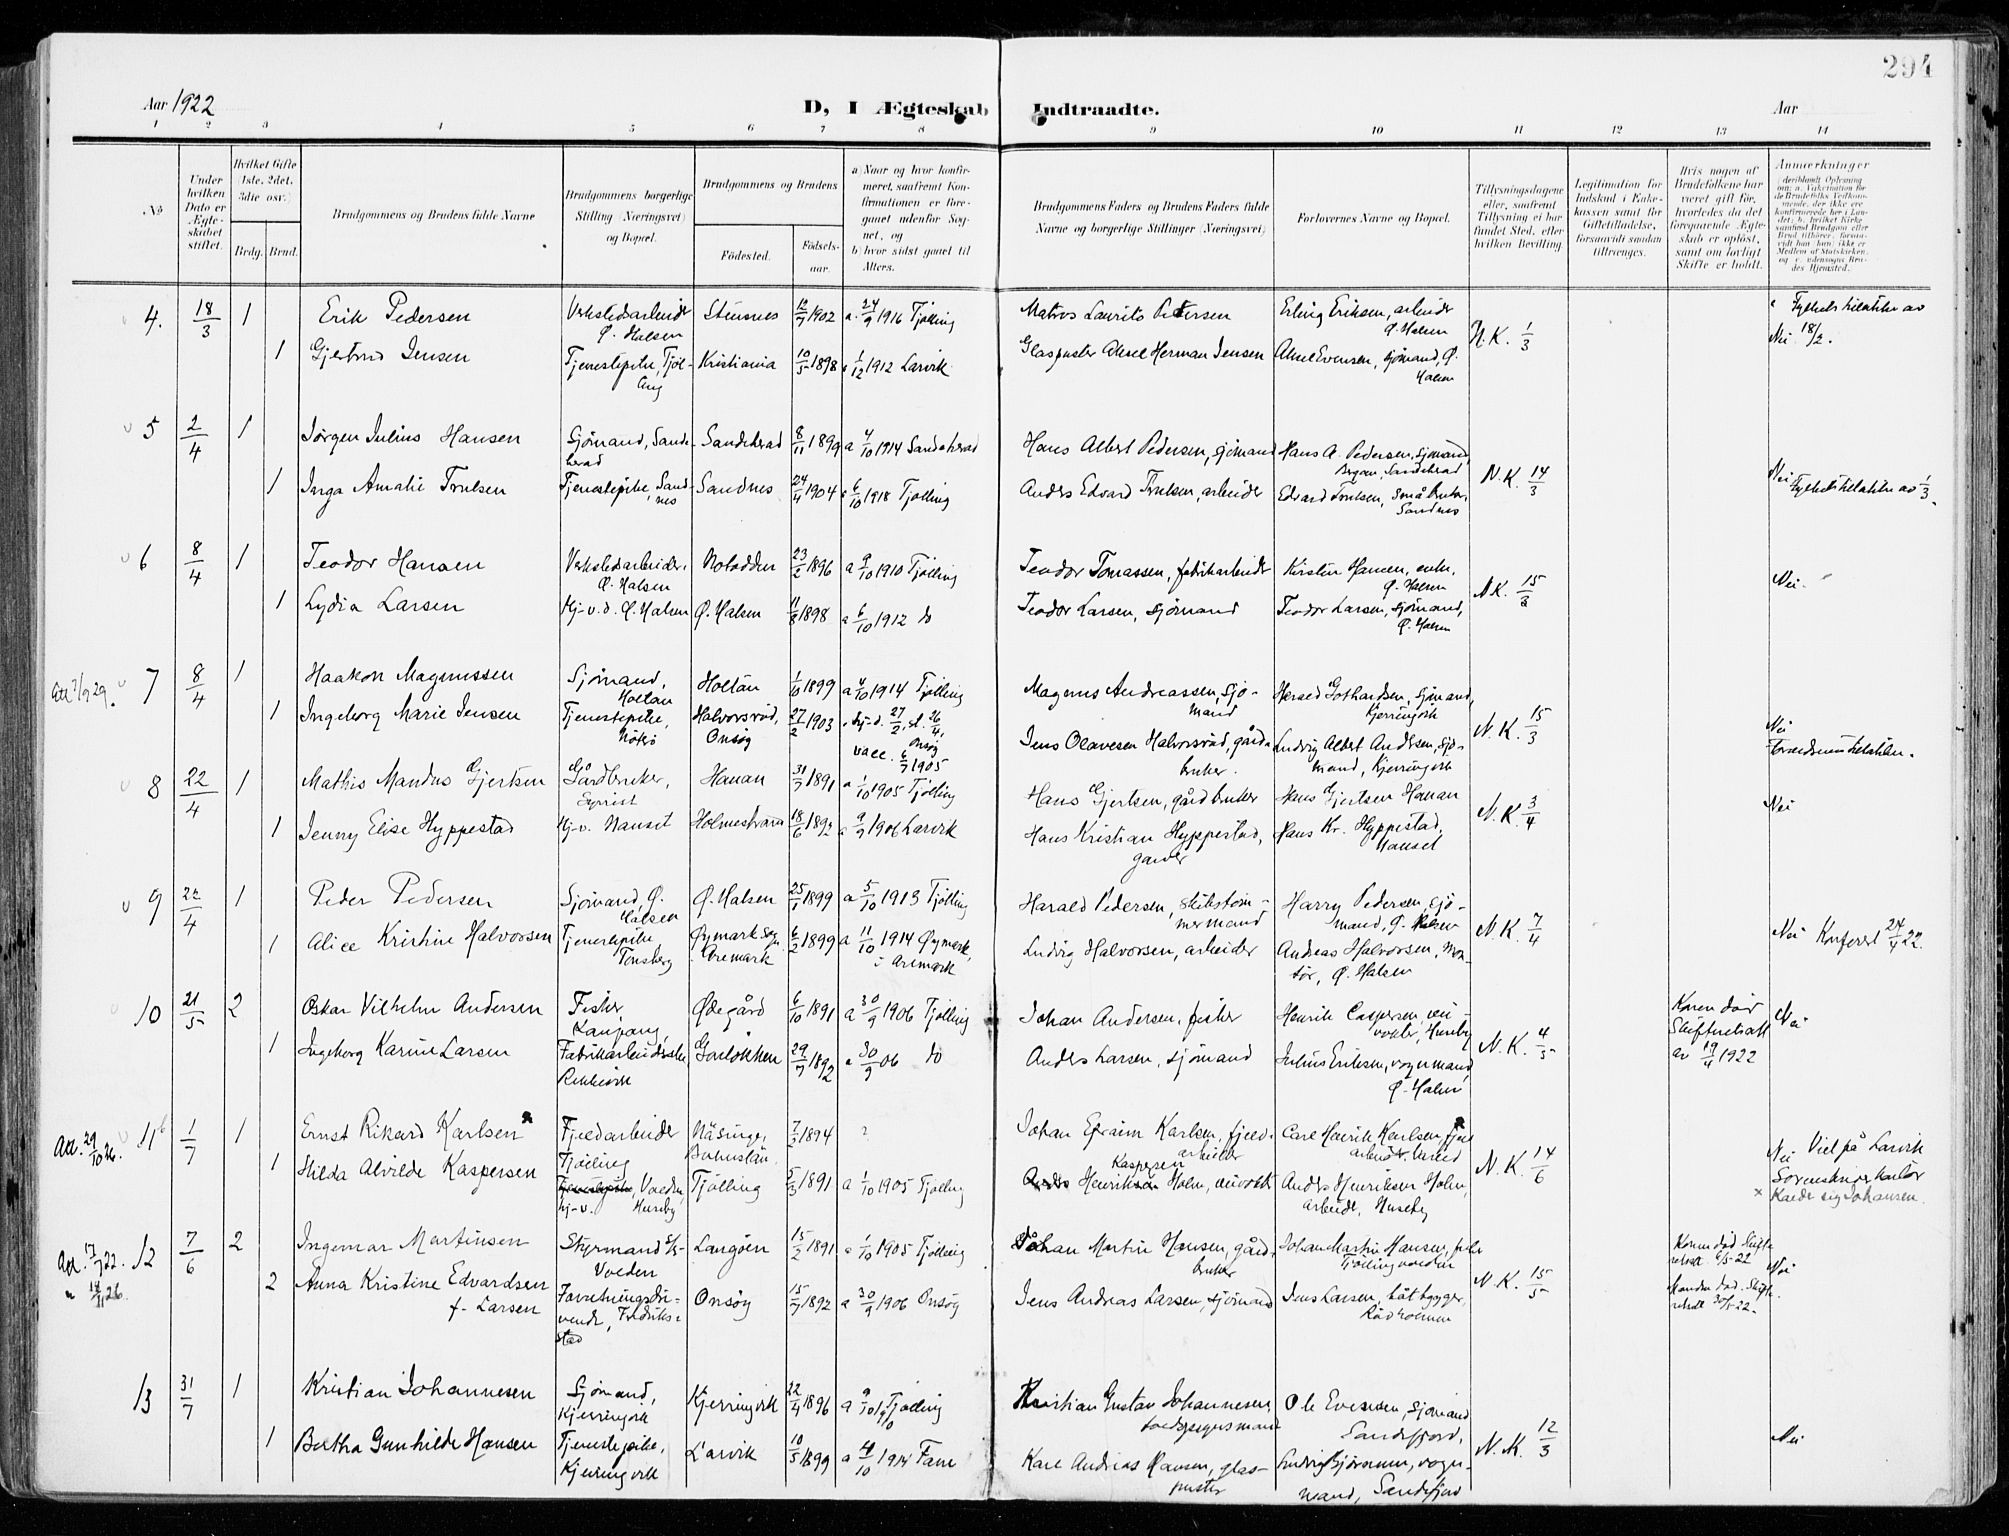 294
Aar 1922
D, I Ægteskab Indtraadte.
Aar
1 2 3 4 5 6 7 8 9 10 11 12 13 14
No
Under hvilken Dato er Ægteskabet stiftet.
Hvilket Gifte (1ste, 2det, 3die osv.)
Brdg. Brud.
Brudgommens og Brudens fulde Navne
Brudgommens borgerlige Stilling (Næringsvei) og Bopæl.
Brudgommens og Brudens
Fødested.
Fødselsaar.
a) Naar og hvor konfirmeret, saafremt Konfirmationen er foregaaet udenfor Sognet, og
b) hvor sidst gaaet til Alters.
Brudgommens Faders og Brudens Faders fulde Navne og borgerlige Stillinger (Næringsvei)
Forlovernes Navne og Bopæl.
Tillysningsdagene eller, saafremt Tillysning ei har fundet Sted, efter hvilken Bevilling.
Legitimation for Indskud i Enkekassen samt for Giftetilladelse, forsaavidt saadan tiltrænges.
Hvis nogen af Brudefolkene har været gift før, hvorledes da det foregaaende Ægteskab er opløst, samt om lovligt Skifte er holdt.
Anmærkninger
4. 18/3 1 Erik Pedersen Verkstedsarbeider Ø. Halsen Stensnes 12/7 1902 a. 24/9 1916 Tjølling Matros Laurits Pedersen Erling Eriksen, arbeider Ø. Halsen N.K. 1/3
Nei 18/2.
1 Gjertrud Jensen Tjenestepike, Tjølling Kristiania 10/5 1898 a 1/12 1912 Larvik Glaspuster Aksel Herman Jensen Aksel Evensen, sjømand, Ø. Halsen
5 2/4 1 Jørgen Julius Hansen Sjømand, Sandeherad Sandeherad 8/11 1899 a 4/10 1914 Sandeherad Hans Albert Pedersen, sjømand Hans A. Pedersen, sjømand, Sandeherad N.K. 14/3
1 Inga Amalie Trulsen Tjenestepike, Sandnes Sandnes 24/4 1904 a 6/10 1918 Tjølling Anders Edvard Trulsen, arbeider Edvard Trulsen, småbruker, Sandnes Nei
6 8/4 1 Teodor Hansen Verkstedsarbeider, Ø. Halsen Notodden 23/2 1896 a 9/10 1910 Tjølling Teodor Tomassen, fabrikarbeider Kirstin Hansen, enke, Ø. Halsen N.K. 15/3 Nei
1 Lydia Larsen Hj.v.d. Ø. Halsen Ø. Halsen 11/8 1898 a 6/10 1912 do Teodor Larsen, sjømand Teodor Larsen, sjømand, Ø. Halsen
Att 7/9 29. 7 8/4 1 Haakon Magnussen Sjømand, Holtan Holtan 1/10 1899 a 4/10 1914 Tjølling Magnus Andreassen, sjømand Hersed Gothardsen, sjømand, Kjerringvik N.K. 15/3
1 Ingeborg Marie Jensen Tjenestepike, Nøterø Halvorsrød, Onsøy 27/2 1903 vacc. 6/7 1905 Onsøy Jens Olavesen Halvorsrød, gårdbruker. Ludvig Albert Andersen, sjømand, Kjerringvik Nei
8 22/4 1 Mathis Mandus Gjertsen Gårdbruker, Hauan 31/7 1891 a 1/10 1905 Tjølling Hans Gjertsen, gårdbruker Hans Gjertsen Hauan N.K. 3/4 Nei
1 Jenny Elise Hyppestad Hj.v. Nanset Holmestrand 18/6 1892 a 9/9 1906 Larvik Hans Kristian Hyppestad, garver Hans Kr. Hyppestad, Nanset
9 22/4 1 Peder Pedersen Sjømand, Ø. Halsen Ø. Halsen 25/1 1899 a 5/10 1913 Tjølling Harald Pedersen, skibstømmermand Harry Pedersen, sjømand, Ø. Halsen N.K. 7/4
1 Alice Kristine Halvorsen Tjenestepike, Tønsberg Øymark sogn, Aremark 6/2 1899 a 11/10 1914 Øymark i Aremark Ludvig Halvorsen, arbeider Andreas Halvorsen, montør, Ø. Halsen Nei 24/4 22.
10 21/5 2 Oskar Vilhelm Andersen Fisker, Kaupang Ødegård 6/10 1891 a 30/9 1906 Tjølling Johan Andersen, fisker Henrik Caspersen, veivokter, Huseby N.K. 4/5 Konen død Skifteattest av 19/4 1922 Nei
1 Ingeborg Karine Larsen Fabrikarbeiderske, Rekkevik Gonløkken 29/7 1892 a 30/9 06 do Anders Larsen, sjømand Julius Eriksen, vognmand, Ø. Halsen
Att. 29/10 26. 11 1/7 1 Ernst Rikard Karlsen Fjeldarbeider Tjølling Näsinge, Bohuslän 7/3 1894 ? Johan Efraim Karlsen, fjeldarbeider Carl Henrik Karlsen, fjeldarbeider N.K. 14/6
1 Hilda Alvilde Kaspersen Tjenestepike, Voldn hj.v. Huseby Tjølling 5/3 1891 a 1/10 1905 Tjølling Kaspersen Anders Henriksen Holm, veivokter Anders Henriksen Holm, arbeider, Huseby Nei Viet på Larvik Sorenskriverkontor
x Kaldte sig Johansen.
Att. 17/7 22. 12 7/6 2 Ingemar Martinsen Styrmand Volden Langøen 15/2 1891 a 1/10 1905 Tjølling Johan Martin Hansen, gårdbruker Johan Martin Hansen, Tjøllingvolden N.K. 15/5 Konen død Skifte Nei
2 Anna Kristine Edvardsen f. Larsen Forretningsdrivende, Fredrikstad Onsøy 15/7 1892 a 30/9 1906 Onsøy Jens Andreas Larsen, sjømand Jens Larsen, båtbygger, Manden død. Skifte
13 31/7 1 Kristian Johannesen Sjømand, Kjerringvik Kjerringvik 22/4 1896 a 9/10 1910 Tjølling Kristian Gustav Johannesen, Ole Evensen, sjømand Sandefjord, N.K. 12/3
1 Bertha Gunhilde Hansen Tjenestepike, Kjerringvik Larvik 10/5 1899 a 4/10 1914 Karl Andreas Hansen, glaspuster Ludvig Bjørnsen, vognmand, Sandefjord Nei